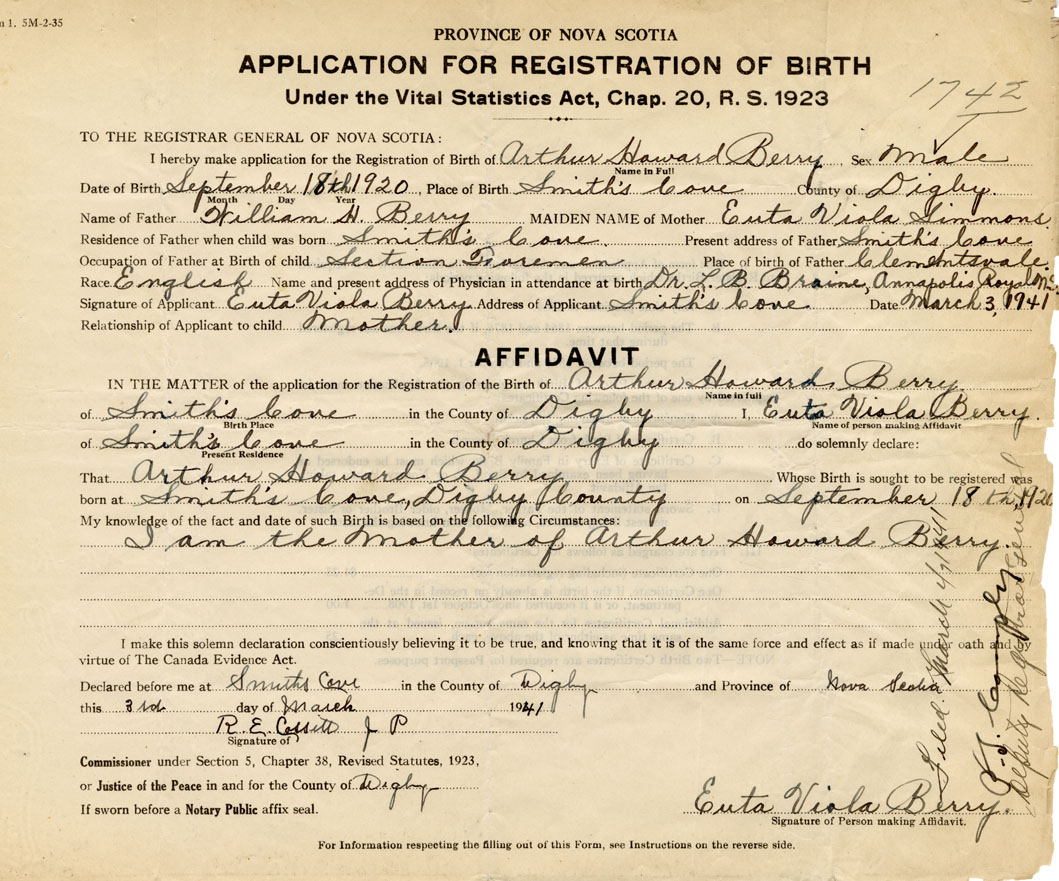 m 1. 5M-2-35
PROVINCE OF NOVA SCOTIA
APPLICATION FOR REGISTRATION OF BIRTH
Under the Vital Statistics Act, Chap. 20, R. S. 1923
1742
TO THE REGISTRAR GENERAL OF NOVA SCOTIA:
I hereby make application for the Registration of Birth of Arthur Howard Berry, Sex Male
Name in Full
Date of Birth September 18th 1920, Place of Birth Smith's Cove County of Digby.
Month Day Year
Name of Father William H. Berry MAIDEN NAME of Mother Euta Viola Simmons.
Residence of Father when child was born Smith's Cove. Present address of Father Smith's Cove
Occupation of Father at Birth of child Section Foremen Place of birth of Father Clementsvale.
Race English Name and present address of Physician in attendance at birth Dr. L. B. Braine, Annapolis Royal N.S.
Signature of Applicant Euta Viola Berry Address of Applicant Smith's Cove Date March 3, 1941
Relationship of Applicant to child Mother.
AFFIDAVIT
IN THE MATTER of the application for the Registration of the Birth of Arthur Howard Berry
Name in full
of Smith's Cove in the County of Digby I, Euta Viola Berry.
Birth Place Name of person making Affidavit
of Smith's Cove in the County of Digby do solemnly declare:
Present Residence
That Arthur Howard Berry Whose Birth is sought to be registered was
born at Smith's Cove, Digby County on September 18th 1920
My knowledge of the fact and date of such Birth is based on the following Circumstances:
I am the Mother of Arthur Howard Berry.
I make this solemn declaration conscientiously believing it to be true, and knowing that it is of the same force and effect as if made under oath and by
virtue of The Canada Evidence Act.
Declared before me at Smiths Cove in the County of Digby and Province of Nova Scotia
this 3rd day of March 1941
R. E. Cossitt J P
Signature of
Commissioner under Section 5, Chapter 38, Revised Statutes, 1923,
or Justice of the Peace in and for the County of Digby
If sworn before a Notary Public affix seal.
Euta Viola Berry.
Signature of Person making Affidavit.
For Information respecting the filling out of this Form, see Instructions on the reverse side.
Filed. March 4/1941
Deputy Registrar General